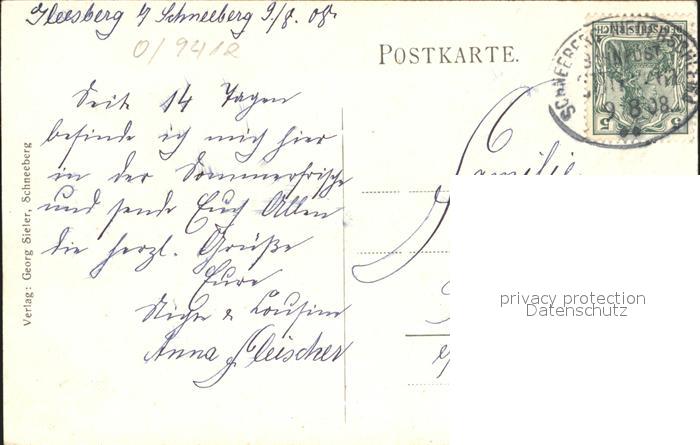 Gleesberg b/ Schneeberg 9/8. 08.
0/9412
POSTKARTE.
DEUTSCHES REICH
5 5
SCHNEEBERG
9 8 08
Seit 14 Tagen
befinde ich mich hier
in der Sommerfrische
und sende Euch Allen
die herzl. Grüße
Eure
Nichte & Cousine
Anna Fleischer
Familie
Verlag: Georg Sieler, Schneeberg
privacy protection
Datenschutz